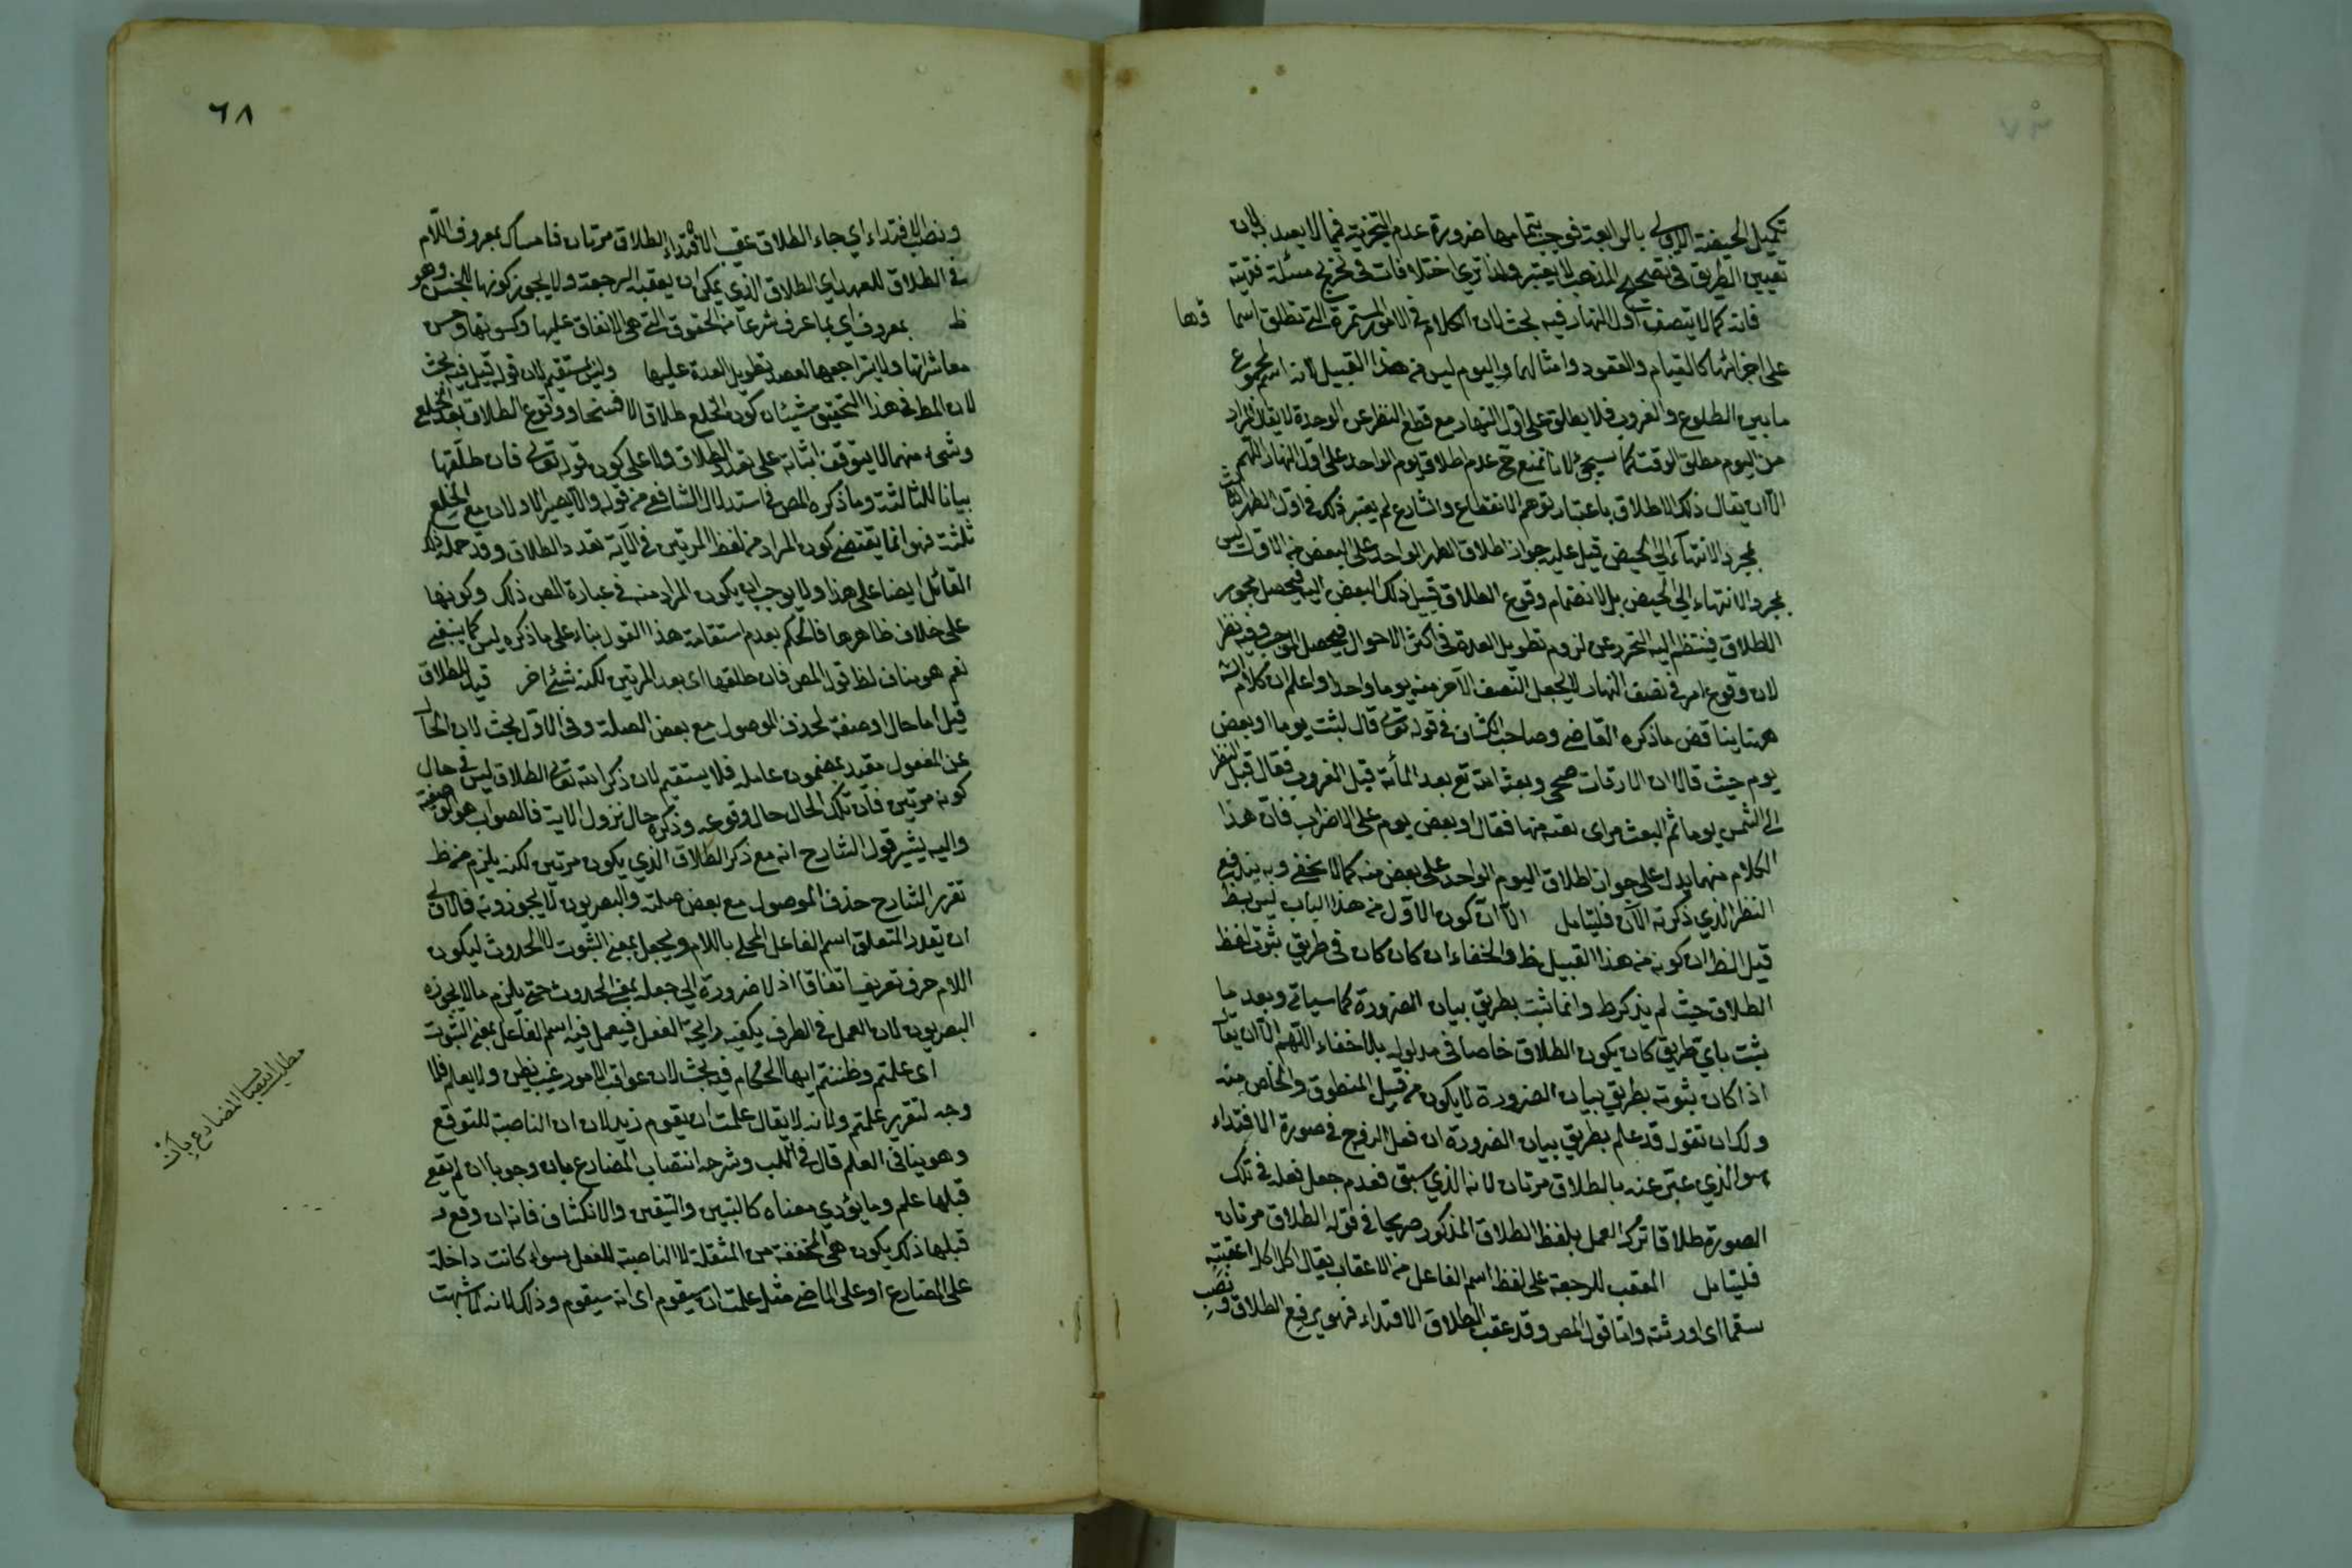 تكميل الحيضة الاولى بالرابعة فوجب بتمامها ضرورة عدم التجزية فيما لا يعد لان
تعيين الطريق في تصحيح المذهب لا يعتبر ولذا ترى اختلافات في تخريج مسئلة فقهية
فانه كما لا يتصف اول النهار فيه بحث لان الكلام في الامور المستمرة التي تطلق اسما وها
على اجزائها كالقيام والقعود وامثالهما واليوم ليس من هذا القبيل لانه اسم لمجموع
ما بين الطلوع والغروب فلا يطلق على اول النهار مع قطع النظر عن الوحدة لا يقال المراد
من اليوم مطلق الوقت كما سيجئ لانا نمنع ح عدم اطلاق اليوم الواحد على اول النهار اللهم
الا ان يقال ذلك الاطلاق باعتبار توهم الانقطاع والشارع لم يعتبر ذلك في اول الطهر
بمجرد الانتهاء الى الحيض قيل عليه جواز اطلاق الطهر الواحد على البعض من الاول ليس
بمجرد الانتهاء الى الحيض بل لانضمام وقوع الطلاق قبيل ذلك البعض اليه فيحصل مجوز
الطلاق فينتظم اليه التحرز عن لزوم تطويل العدة في اكثر الاحوال فيحصل الموجب وفيه نظر
لان وقوع امر في نصف النهار لا يجعل النصف الآخر منه يوما واحدا واعلم ان كلام
ههنا يناقض ما ذكره القاضي وصاحب الكشاف في قوله تعالى قال لبثت يوما او بعض
يوم حيث قالا ان مات ضحى وبعث انه تع بعد المأة قبل الغروب فقال قبل النظر
الى الشمس يوما ثم البعث مراى بقية منها فقال او بعض يوم على الاضراب فان هذا
الكلام منهما يدل على جواز اطلاق اليوم الواحد على بعض منه كما لا يخفى وبه يندفع
النظر الذي ذكرته الآن فليتامل الا ان كون الاول من هذا الباب ليس بظ
قيل الظ ان كونه من هذا القبيل ظ والخفاء ان كان كان في طريق ثبوت لفظ
الطلاق حيث لم يذكر ط وانما ثبت بطريق بيان الضرورة كما سياتي وبعد ما
يثبت باي طريق كان يكون الطلاق خاصا في مدلوله بلا خفاء اللهم الا ان يقا
اذا كان ثبوته بطريق بيان الضرورة لا يكون من قبيل المنطوق والخاص منه
ولك ان تقول قد علم بطريق بيان الضرورة ان فعل الزوج في صورة الافتداء
هو الذي عبّر عنه بالطلاق مرتان لانه الذي سبق فعدم جعل فعله في تلك
الصورة طلاقا ترك العمل بلفظ الطلاق المذكور صريحا في قوله الطلاق مرتان
فليتامل المعقب للرجعة على لفظ اسم الفاعل من الاعقاب يقال اكل اكلا اعقبته
سقما اى اورثته واما قول المص وقد عقب الطلاق الافتداء فهو برفع الطلاق ونصب
٦٨
ونصب الافتداء اي جاء الطلاق عقيب الافتداء الطلاق مرتان فامساك بمعروف اللام
في الطلاق للعهد اي الطلاق الذي يمكن ان يعقبه الرجعة ولا يجوز كونها للجنس وهو
ظ بمعروف اي بما عرف شرعا من الحقوق التي هي الانفاق عليها وكسوتها وحسن
معاشرتها ولا يراجعها لقصد تطويل العدة عليها وليس بمستقيم لان قوله قيل فيه بحث
لان المط في هذا التحقيق شيئان كون الخلع طلاقا لا فسخا ووقوع الطلاق بعد الخلع
وشئ منهما لا يتوقف اثباته على تعدد الطلاق ولا على كون قوله تعالى فان طلقها
بيانا للثالثة وما ذكره المص في استدلال الشافعي من قوله والا يصير الاولان مع الخلع
ثلثة فهو انما يقتضي كون المراد من لفظ المرتين في الآية تعدد الطلاق وقد حمله ذلك
القائل ايضا على هذا ولا يوجب ان يكون المراد منه في عبارة المص ذلك وكونها
على خلاف ظاهرها فالحكم بعدم استقامة هذا القول بناء على ما ذكره ليس كما ينبغي
نعم هو مناف لظ قول المص فان طلقها اى بعد المرتين لكنه شئ آخر قيل الطلاق
قيل اما حال او صفة لحذف الموصول مع بعض الصلة وفي الاول بحث لان الحال
عن المفعول مقيد بمضمون عامله فلا يستقيم لان ذكر الله تعالى الطلاق ليس في حال
كونه مرتين فان تلك الحال حال وقوعه وذكره حال نزول الاية فالصواب هو انه صفة
واليه يشير قول الشارح انه مع ذكر الطلاق الذي يكون مرتين لكنه يلزم من ظ
تقرير الشارح حذف الموصول مع بعض صلته والبصريون لا يجوزونه فالاولى
ان يقدر المتعلق اسم الفاعل المحلى باللام ويجعل بمعنى الثبوت لا الحدوث ليكون
اللام حرف تعريف اتفاقا اذ لا ضرورة الى جعله بمعنى الحدوث حتى يلزم ما لا يجوزه
البصريون لان العمل في الظرف يكفيه رايحة الفعل فيعمل فيه اسم الفاعل بمعنى الثبوت
اى علمتم وظننتم ايها الحكام فيه بحث لان عواقب الامور غيب يظن ولا يعلم فلا
وجه لتقرير علمتم ولانه لا يقال علمت ان يقوم زيد لان ان الناصبة للتوقع
وهو ينافي العلم قال في اللب وشرحه انتصاب المضارع بان وجوبا ان لم يقع
قبلها علم وما يؤدي معناه كالتبيين والتيقن والانكشاف فانه ان وقع
قبلها ذلك يكون هي المخففة من المثقلة لا الناصبة للفعل سواء كانت داخلة
على المضارع او على الماضي مثل علمت ان سيقوم اى انه سيقوم وذلك لانه لما شبهت
مطلب انتصاب المضارع بان